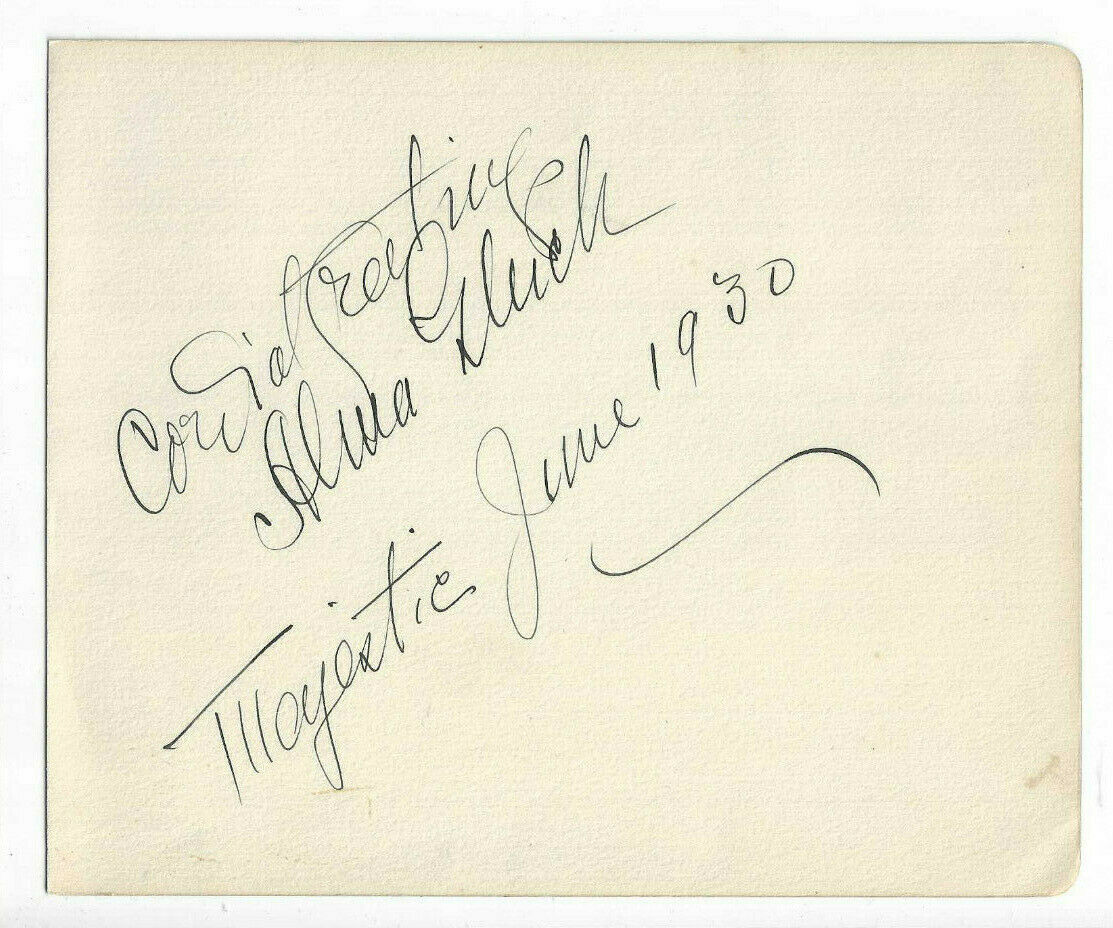 Cordial greetings
Alma Gluck
Majestic June 1930